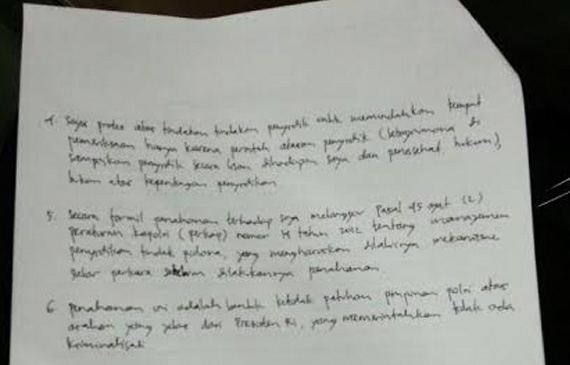 4. Saya protes atas tindakan tindakan penyidik untuk memindahkan tempat
pemeriksaan hanya karena perintah atasan penyidik (sebagaimana di
sampaikan penyidik secara lisan dihadapan saya dan penasehat hukum),
bukan atas kepentingan penyidikan
5. Secara formil penahanan terhadap saya melanggar Pasal 45 ayat (2)
peraturan kapolri (perkap) nomor 14 tahun 2012 tentang manajemen
penyidikan tindak pidana, yang mengharuskan dilaluinya mekanisme
gelar perkara sebelum dilakukannya penahanan
6. Penahanan ini adalah bentuk ketidak patuhan pimpinan polri atas
arahan yang jelas dari Presiden RI, yang memerintahkan tidak ada
kriminalisasi